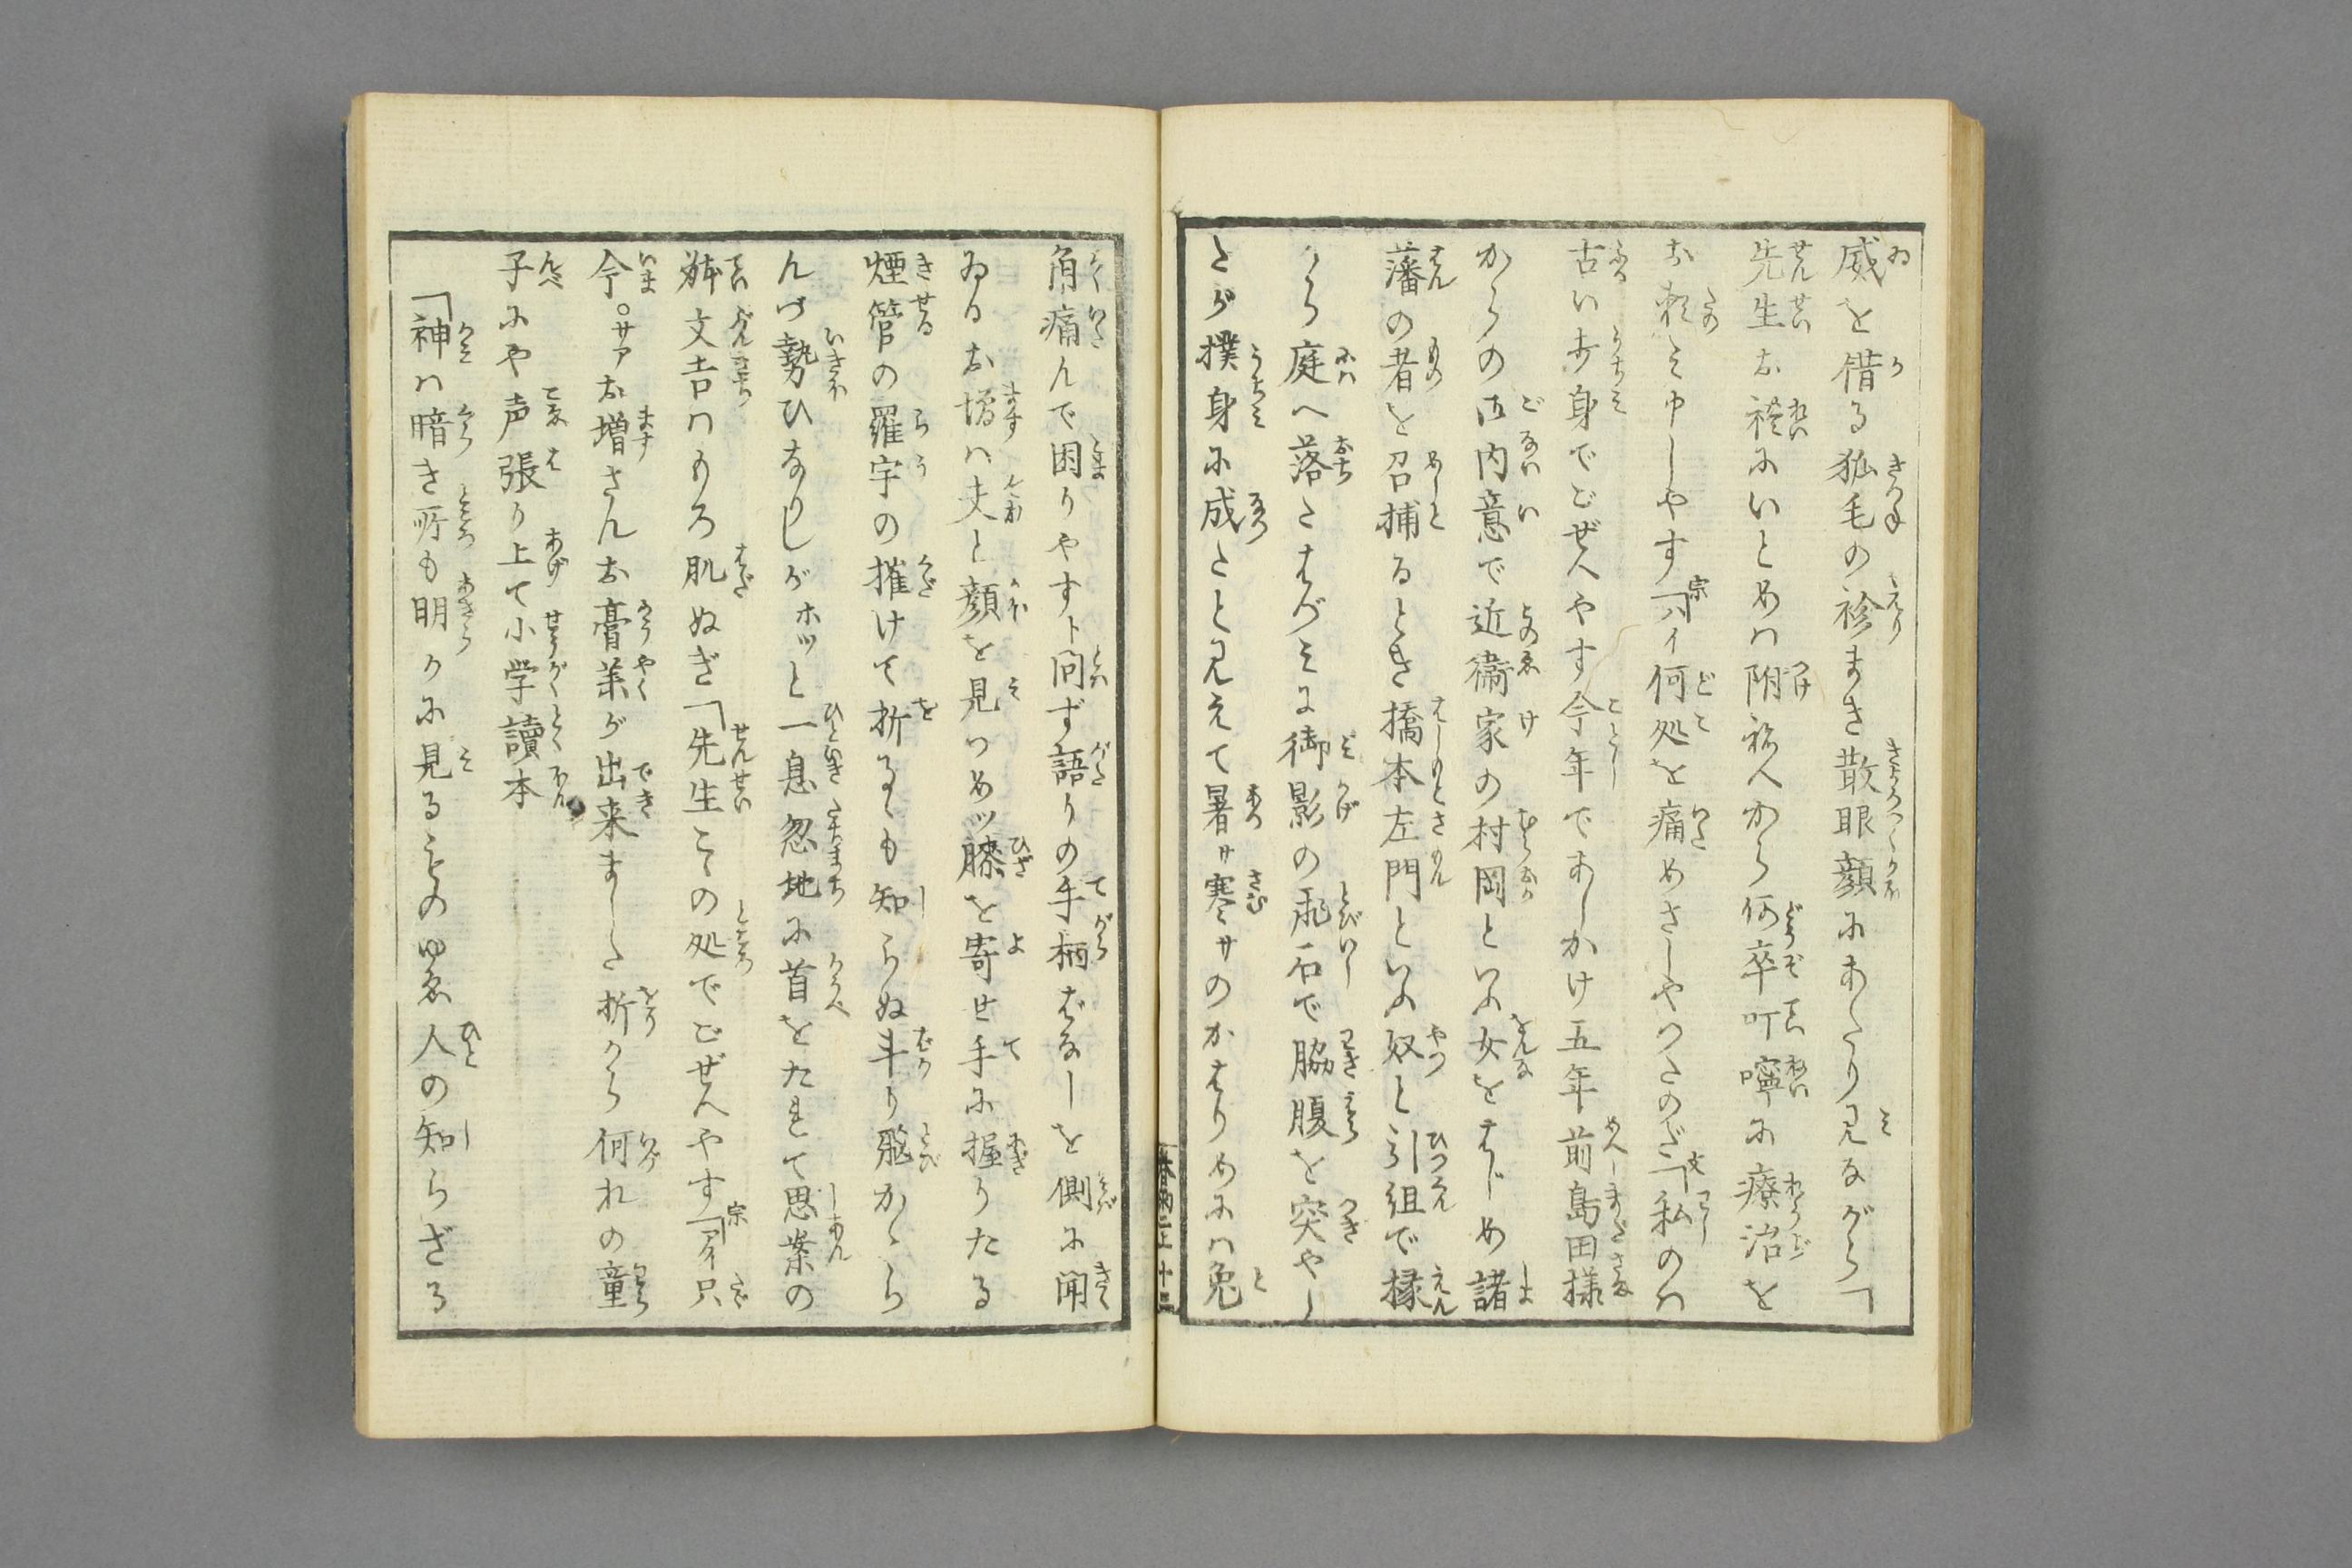 威を借る狐毛の衿まき散眼顔にあたり見ながら「
先生お礼にいとめハ附祢へから何卒叮嚀に療治を
お頼ミ申しやす宗「ハイ何処を痛めさしやつたのだ文「私のハ
古いお身でごぜへやす今年でおしかけ五年前島田様
からの御内意で近衛家の村岡といふ女をはじめ諸
藩の者を召捕るとき橋本左門といふ奴と引組で椽
から庭へ落たはづミに御影の飛石で脇腹を突やし
たが撲身に成たと見えて暑サ寒サのかはりめにハ兎
角痛んで困りやすト問ず語りの手柄ばなしを側に聞
ゐるお増ハ夫と顔を見つめツ膝を寄せ手に握りたる
煙管の羅宇の摧けて折るゝも知らぬ斗り飛かゝら
んづ勢ひなりしがホツと一息忽地に首をたれて思案の
躰文吉ハもろ肌ぬぎ「先生こゝの処でごぜへやす宗「アイ只
今。サアお増さんお膏薬が出来ました折から何れの童
子にや声張り上て小学讀本
「神ハ暗き所も明らに見るものゆゑ人の知らざる